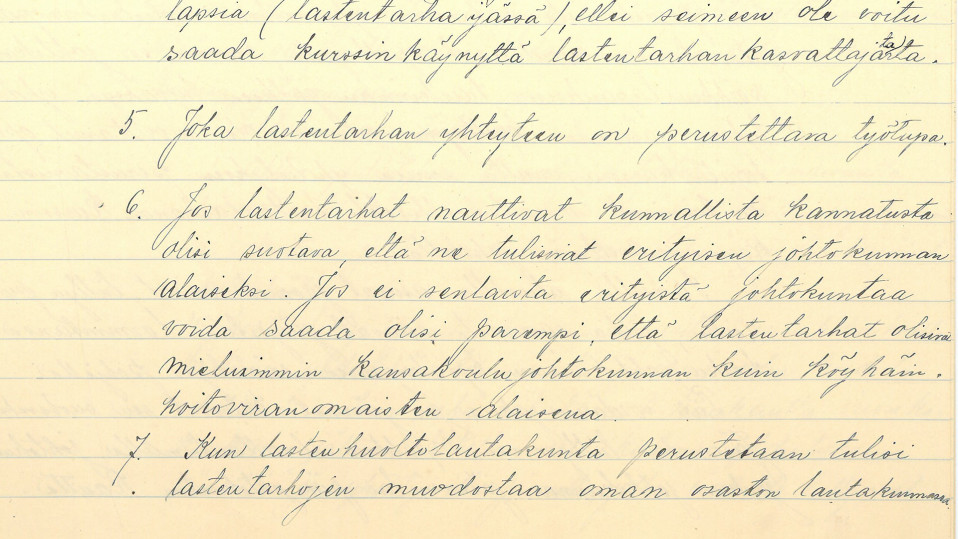 lapsia (lastentarha iässä), ellei seimeen ole voitu
saada kurssin käynyttä lastentarhankasvattajatarta.
5. Joka lastentarhan yhteyteen on perustettava työtupa.
6. Jos lastentarhat nauttivat kunnallista kannatusta
olisi suotava, että ne tulisivat erityisen johtokunnan
alaiseksi. Jos ei senlaista erityistä johtokuntaa
voida saada olisi parempi, että lastentarhat olisivat
mieluimmin kansakoulujohtokunnan kuin köyhäin-
hoitoviranomaisten alaisena.
7. Kun lastenhuoltolautakunta perustetaan tulisi
lastentarhojen muodostaa oman osaston lautakunnassa.